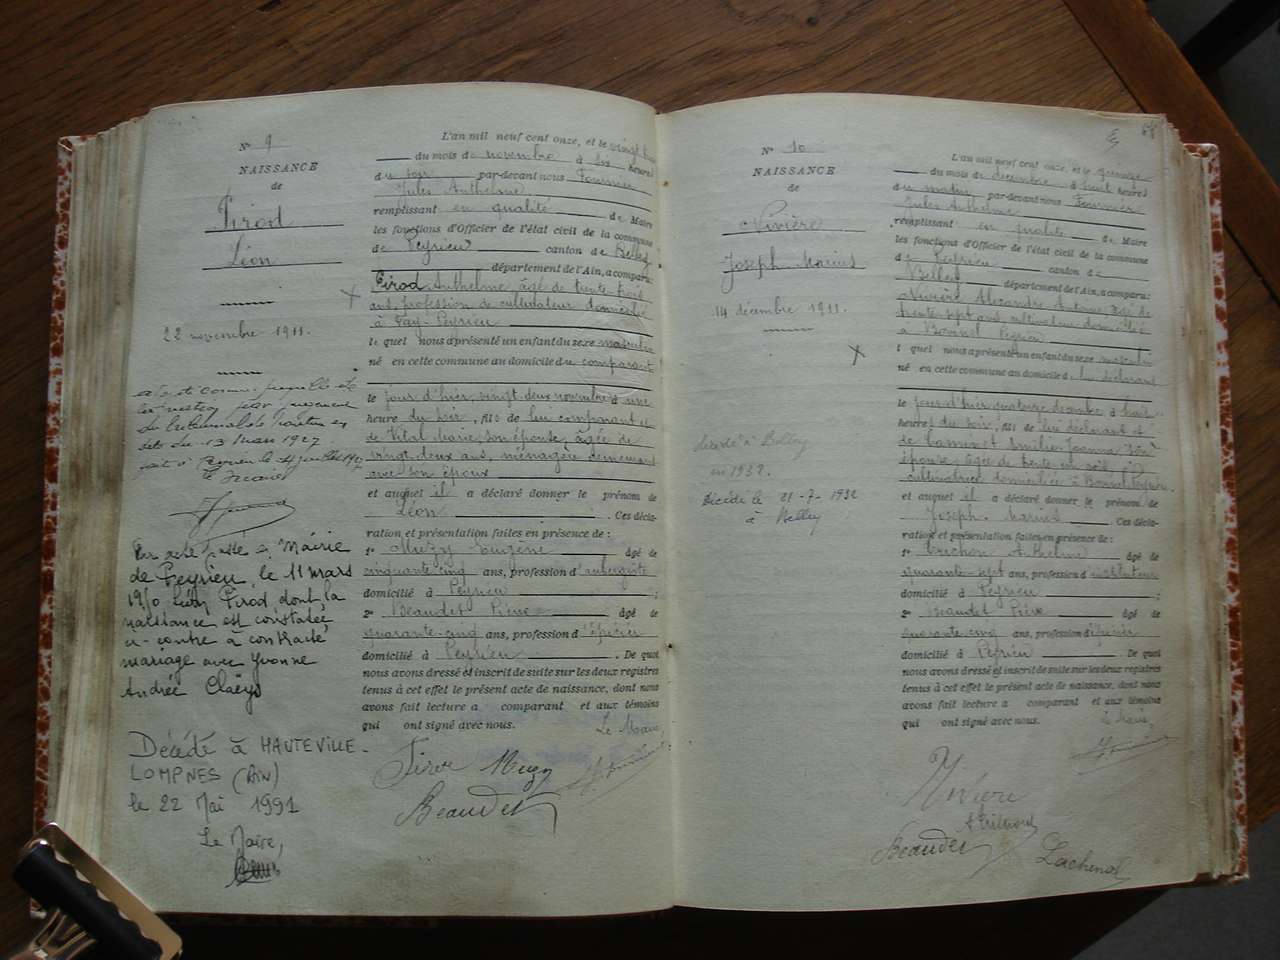 N° 9
NAISSANCE
de
Pirod
Léon
22 novembre 1911.
du 13 Mars 1927
Par acte passé en Mairie
de Peyrieu, le 11 mars
Pirod, dont la
naissance est constatée
ci-contre à contracté
mariage avec Yvonne
Andrée Claëys
Décédé à HAUTEVILLE-
LOMPNES (Ain)
le 22 Mai 1991
Le Maire,
L'an mil neuf cent onze, et le vingt trois
du mois de novembre à six heures
du soir par-devant nous Fournier
Jules Anthelme
remplissant en qualité de Maire
les fonctions d'Officier de l'état civil de la commune
de Peyrieu canton de Belley
département de l'Ain, a comparu:
Pirod Anthelme âgé de trente trois
ans, profession de cultivateur domicilié
à Fay-Peyrieu
le quel nous a présenté un enfant du sexe masculin
né en cette commune au domicile du comparant
le jour d'hier, vingt deux novembre à une
heure du soir, fils de lui comparant et
de Vital Marie, son épouse, âgée de
vingt deux ans, ménagère demeurant
avec son époux
et auquel il a déclaré donner le prénom de
Léon. Ces décla-
ration et présentation faites en présence de:
1° Muzy Eugène âgé de
cinquante cinq ans, profession d'aubergiste
domicilié à Peyrieu;
2° Beaudet Pierre âgé de
quarante-cinq ans, profession d'épicier
domicilié à Peyrieu. De quoi
nous avons dressé et inscrit de suite sur les deux registres
tenus à cet effet le présent acte de naissance, dont nous
avons fait lecture a comparant et aux témoins
qui ont signé avec nous. Le Maire,
Muzy
Beaudet
N° 10
NAISSANCE
de
Nivière
Joseph Marius
14 décembre 1911.
décédé à Belley
en 1932.
Décédé le 21-7-1932
à Belley
L'an mil neuf cent onze, et le quinze
du mois de décembre à huit heures
du matin par-devant nous Fournier
Jules Anthelme
remplissant en qualité de Maire
les fonctions d'Officier de l'état civil de la commune
de Peyrieu canton de
Belley département de l'Ain, a comparu:
Nivière Alexandre Antoine, âgé de
trente sept ans, cultivateur domicilié
à Bonnel Peyrieu
le quel nous a présenté un enfant du sexe masculin
né en cette commune au domicile du lui déclarant
le jour d'hier quatorze décembre à huit
heures du soir, fils de lui déclarant et
épouse âgée de trente un
cultivatrice domiciliée à Bonnel Peyrieu
et auquel il a déclaré donner le prénom de
Joseph-Marius. Ces décla-
ration et présentation faites en présence de:
1° Anthelme âgé de
quarante sept ans, profession d'instituteur
domicilié à Peyrieu;
2° Beaudet Pierre âgé de
quarante-cinq ans, profession d'épicier
domicilié à Peyrieu. De quoi
nous avons dressé et inscrit de suite sur les deux registres
tenus à cet effet le présent acte de naissance, dont nous
avons fait lecture a comparant et aux témoins
qui ont signé avec nous. Le Maire,
Nivière
Beaudet
Lachenal